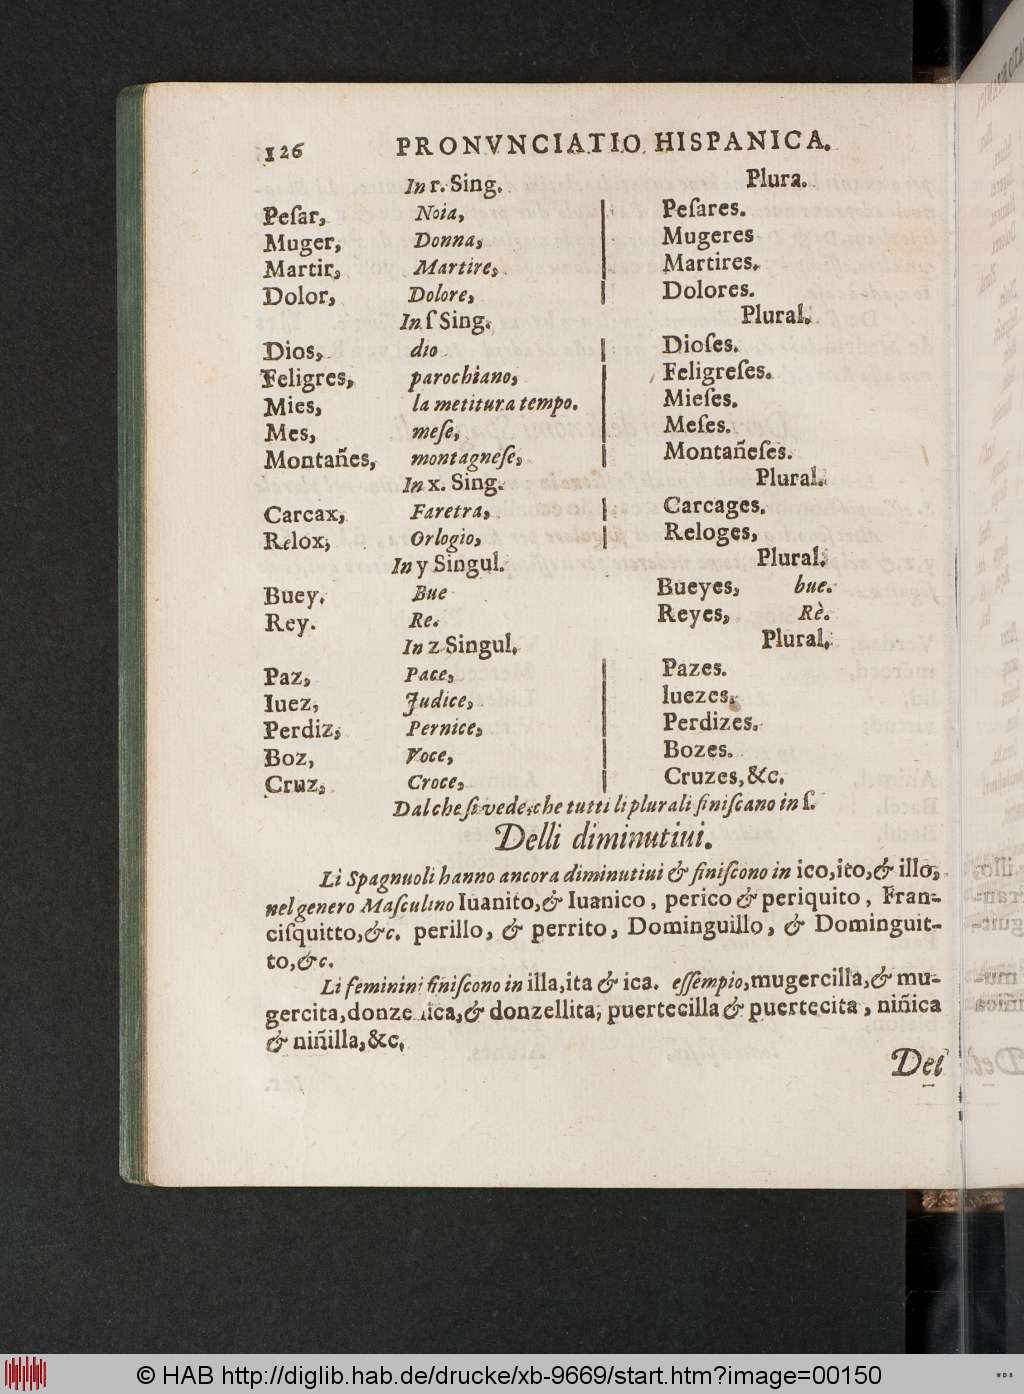 126 PRONVNCIATIO HISPANICA.
In r. Sing. Plura.
Peſar, Noia, Peſares.
Muger, Donna, Mugeres
Martir, Martire, Martires.
Dolor, Dolore, Dolores.
In ſ Sing. Plural.
Dios, dio Dioſes.
Feligres, parochiano, Feligreſes.
Mies, la metitura tempo. Mieſes.
Mes, meſe, Meſes.
Montañes, montagneſe, Montañeſes.
In x. Sing. Plural.
Carcax, Faretra, Carcages.
Relox, Orlogio, Reloges,
In y Singul. Plural.
Buey. Bue Bueyes, bue.
Rey. Re. Reyes, Rè.
In z Singul. Plural.
Paz, Pace, Pazes.
Iuez, Judice, Iuezes.
Perdiz, Pernice, Perdizes.
Boz, Voce, Bozes.
Cruz, Croce, Cruzes, &c.
Dal che ſi vede, che tutti li plurali finiſcano in ſ.
Delli diminutiui.
Li Spagnuoli hanno ancora diminutiui & finiſcono in ico, ito, & illo,
nel genero Maſculino Iuanito, & Iuanico, perico & periquito, Fran-
ciſquitto, &c. perillo, & perrito, Dominguillo, & Dominguit-
to, &c.
Li feminini finiſcono in illa, ita & ica. eſſempio, mugercilla, & mu-
gercita, & donzellita, puertecilla & puertecita, niñica
& niñilla, &c.
Del
© HAB http://diglib.hab.de/drucke/xb-9669/start.htm?image=00150